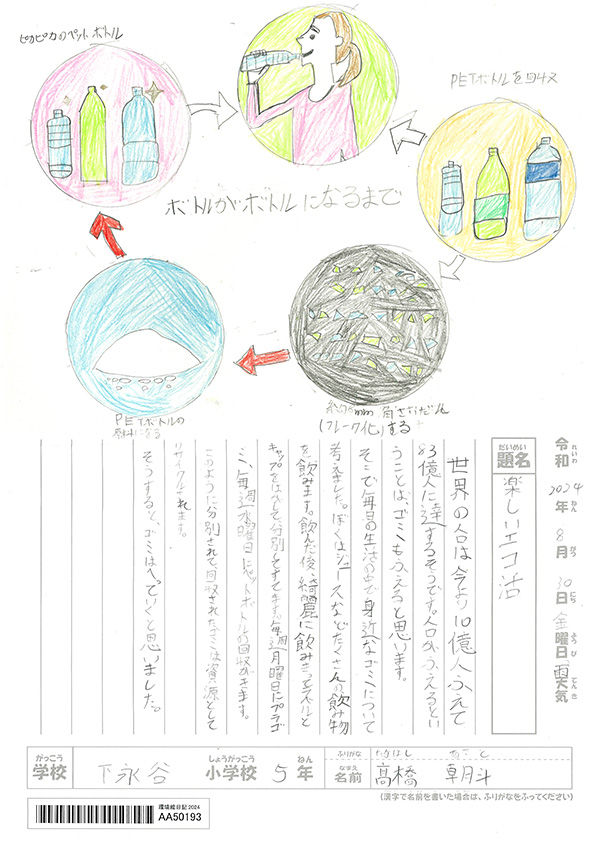 ピカピカのペットボトル
PETボトルを回収
ボトルがボトルになるまで
PETボトルの
原料になる
(フレーク化)する
令和 2024年 8月 30日 金曜日 雨 天気
れいわ ねん がつ にち ようび てんき
だいめい
題名 楽しいエコ活
世界の人口は今より10億人ふえて
83億人に達するそうです。人口がふえるとい
うことは、ゴミもふえると思います。
そこで毎日の生活の中で身近なゴミについて
考えました。ぼくはジュースなどたくさんの飲み物
を飲みます。飲んだ後、綺麗に飲みきってラベルと
キャップをはずして分別してすてます。毎週月曜日にプラゴ
ミ、毎週水曜日にペットボトルの回収がきます。
このように分別されて回収されたゴミは資源として
リサイクルされます。
そうすると、ゴミはへっていくと思いました。
がっこう しょうがっこう ねん ふりがな たかはし
学校 下永谷 小学校 5年 なまえ 名前 高橋 朝斗
(漢字で名前を書いた場合は、ふりがなをふってください)
環境絵日記2024
AA50193